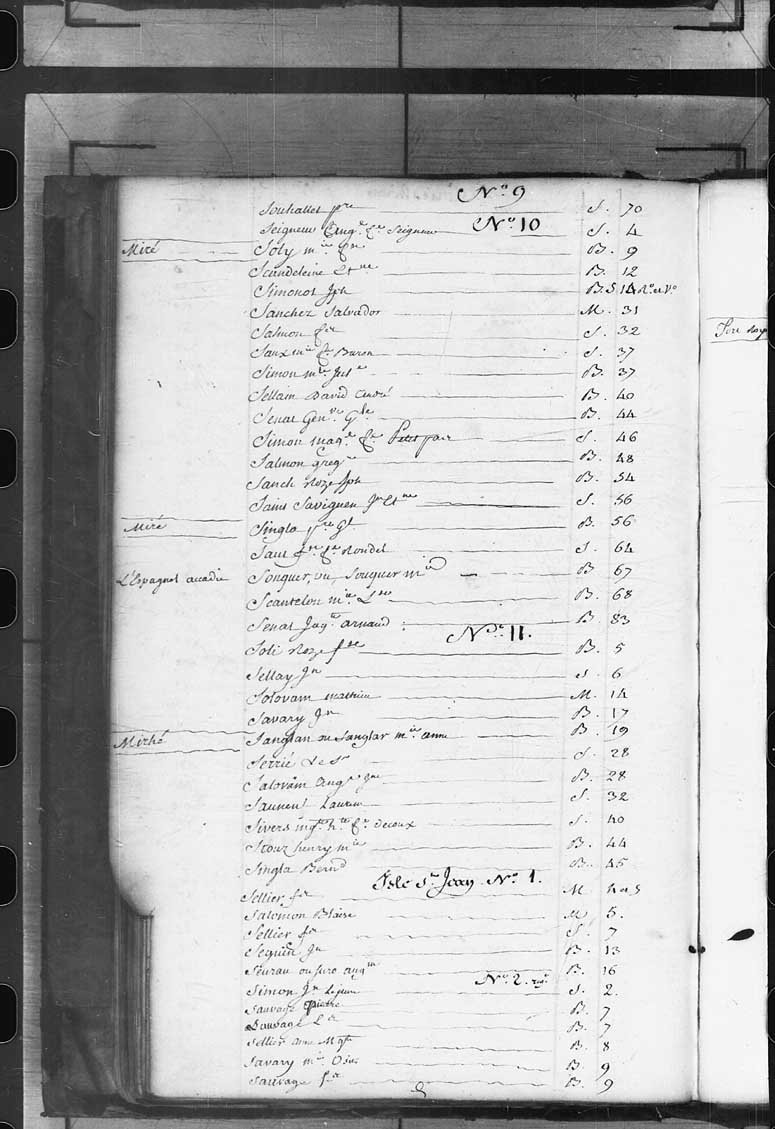 No 9
Souhallet pre S. 70
Seigneur Ang.e fe Seigneur No 10 S. 4
Miré Soly m.ie B. 9
Scandeleine Et.ne B. 12
Simonot Jph B.S 14 Ro. et Vo
Sanchez Salvador M. 31
Salmon S. 32
Saux m.ie fe Baron S. 37
Simon m.ie B. 37
Sellain David André B. 40
Senat Gen.ve B. 44
Simon mag.e fe Petit pas S. 46
Salmon greg.re B. 48
Sanch Roze Jph B. 54
Saint Savignen Jn Et.ne S. 56
Miré Singlo B. 56
Saut fe Rondel S. 64
L'Espagnol accadie Sonquer, ou Souquer m.ie B 67
Scantelou m.ie B. 68
Senat Jaq. arnaud B 83
No. 11.
Soli Roze B. 5
Sellay Jn S. 6
Solovam mathieu M. 14
Savary Jn B. 17
Mirhé Sanglan ou Sanglar m.ie anne B. 19
Serrié S. 28
Salovam Ang. Jne B. 28
Saunent Laurent S. 32
Sivers mg.te fe decoux S. 40
Stour henry m.ie B. 44
Singla Bern.d B. 45
Isle St Jean No 1.
Sellier M 4 et 5
Salomon Blaise M 5.
Sellier S. 7
Sequin Jn B. 13
Seurau ou suro B. 16
Simon Jn Lejeune No. 2. S. 2.
Sauvage pierre B. 7
Sauvage B. 7
Sellier anne Mgte B. 8
Savary m.ie B. 9
Sauvage B. 9